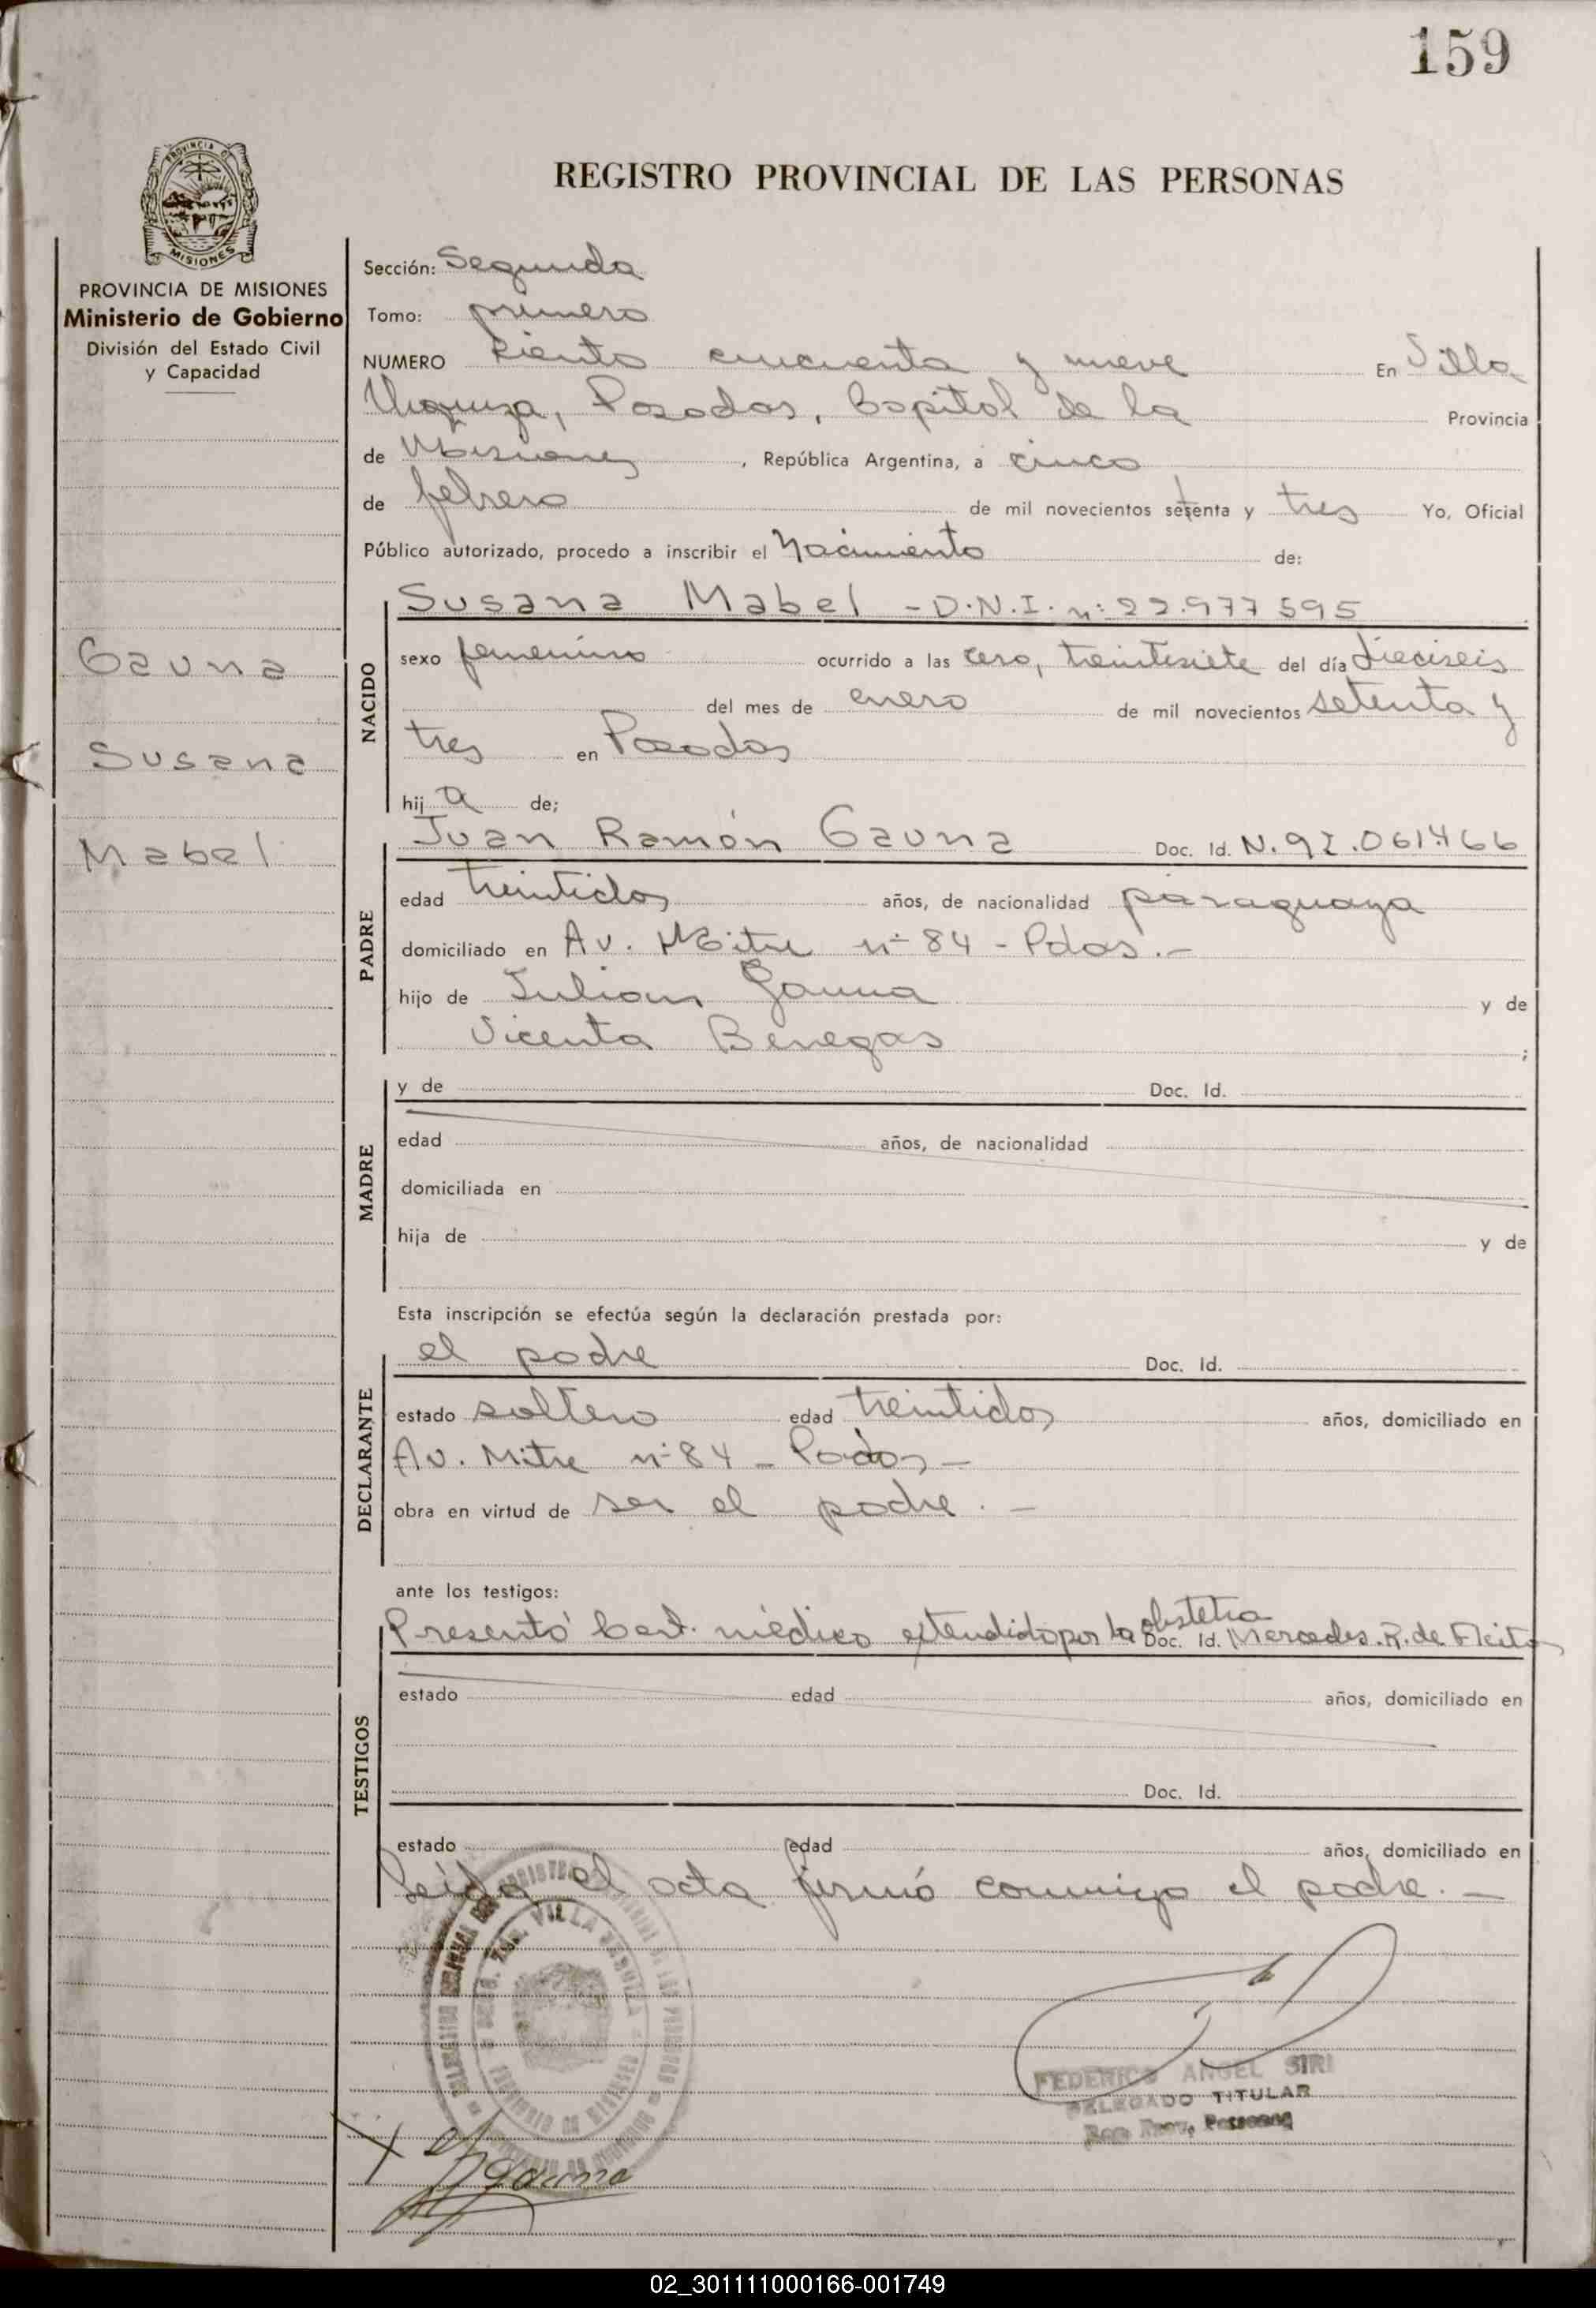 159
REGISTRO PROVINCIAL DE LAS PERSONAS
PROVINCIA DE MISIONES
MISIONES
PROVINCIA DE MISIONES
Ministerio de Gobierno
División del Estado Civil
y Capacidad
Gauna
Susana
Mabel
Sección: Segunda
Tomo: primero
NUMERO Ciento cincuenta y nueve En Villa
Urquiza, Posadas, Capital de la Provincia
de Misiones, República Argentina, a cinco
de febrero de mil novecientos setenta y tres Yo, Oficial
Público autorizado, procedo a inscribir el Nacimiento de:
NACIDO
Susana Mabel - D.N.I. nº: 22.977595
sexo femenino ocurrido a las cero, treintisiete del día dieciseis
del mes de enero de mil novecientos setenta y
tres en Posadas
hij a de;
PADRE
Juan Ramón Gauna Doc. Id. N. 92.061.466
edad treintidos años, de nacionalidad paraguaya
domiciliado en Av. Mitre nº 84 - Pdas. -
hijo de Julian Gauna y de
Vicenta Benegas ;
MADRE
y de Doc. Id.
edad años, de nacionalidad
domiciliada en
hija de y de
Esta inscripción se efectúa según la declaración prestada por:
DECLARANTE
el padre Doc. Id.
estado soltero edad treintidos años, domiciliado en
Av. Mitre nº 84 - Podas -
obra en virtud de ser el padre. -
ante los testigos:
TESTIGOS
Presentó Cert. médico extendido por la obstetra Doc. Id. Mercedes. R. de
estado edad años, domiciliado en
Doc. Id.
estado edad años, domiciliado en
Leída el acta firmó conmigo el padre. -
VILLA
FEDERICO ANGEL SIRI
DELEGADO TITULAR
Reg. Prov. Personas
X Gauna
02_301111000166-001749